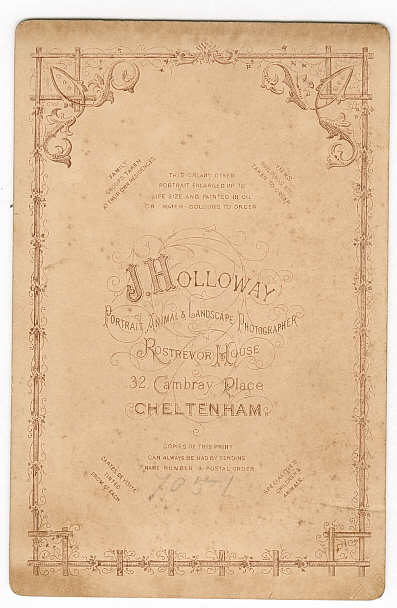 FAMILY
GROUPS TAKEN
AT THEIR OWN RESIDENCES
VIEWS
TAKEN TO ORDER
THIS OR ANY OTHER
PORTRAIT ENLARGED UP TO
LIFE SIZE AND PAINTED IN OIL
OR WATER COLOURS TO ORDER
J. HOLLOWAY
PORTRAIT, ANIMAL & LANDSCAPE PHOTOGRAPHER
ROSTREVOR HOUSE
32 Cambray Place
CHELTENHAM.
COPIES OF THIS PRINT
CAN ALWAYS BE HAD BY SENDING
NAME NUMBER & POSTAL ORDER
CARTES DE VISITE
FROM EACH
CHILDREN &
ANIMALS